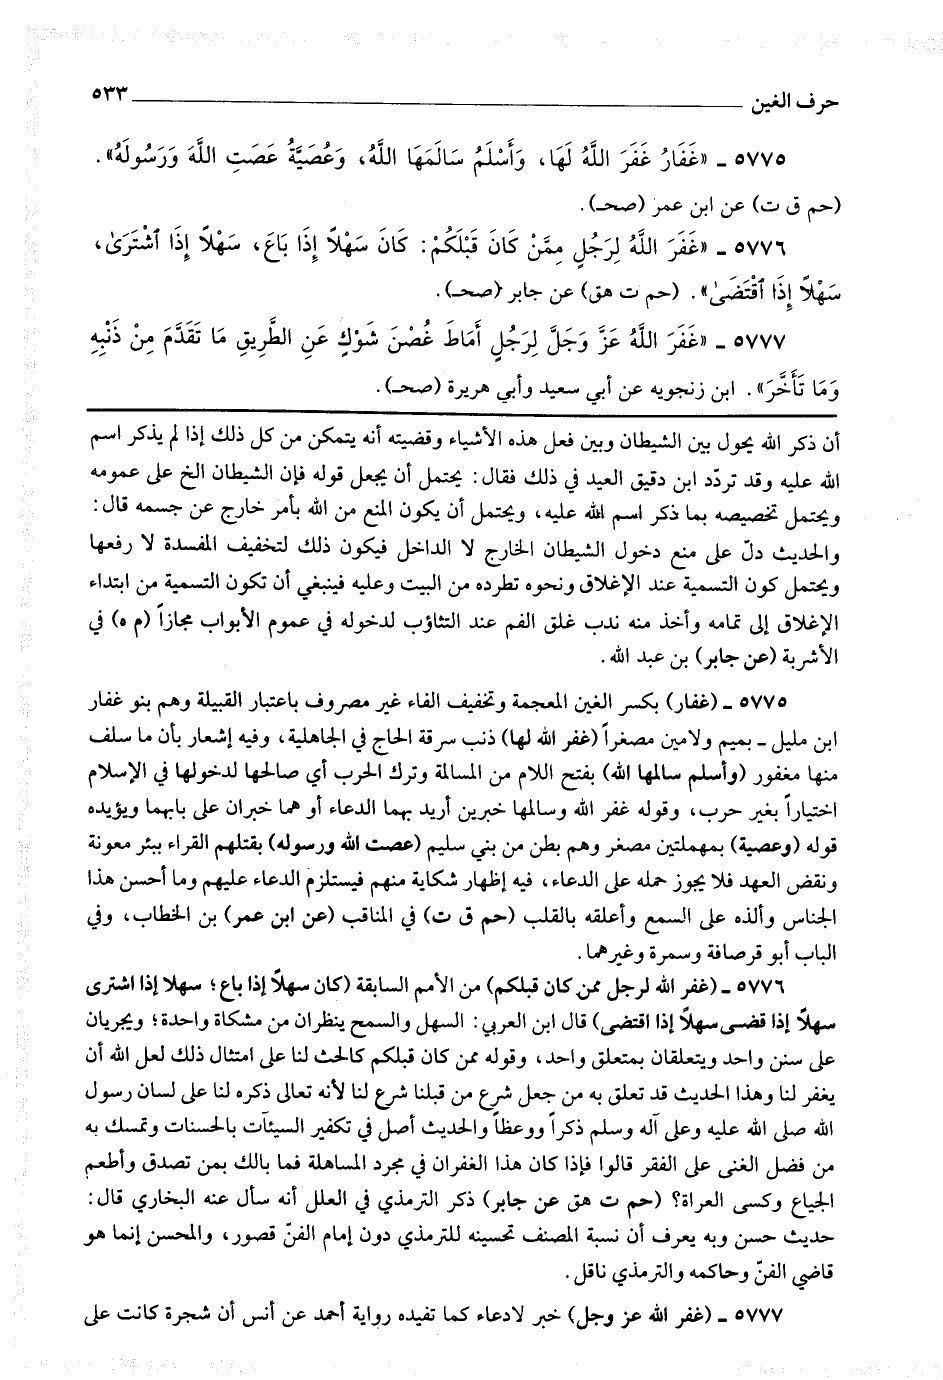 حرف الغين ٥٣٣
٥٧٧٥ ـ «غَفَارُ غَفَرَ اللَّهُ لَهَا، وَأَسْلَمُ سَالَمَهَا اللَّهُ، وَعُصَيَّةُ عَصَتِ اللَّهَ وَرَسُولَهُ».
(حم ق ت) عن ابن عمر (صحـ).
٥٧٧٦ ـ «غَفَرَ اللَّهُ لِرَجُلٍ مِمَّنْ كَانَ قَبْلَكُمْ: كَانَ سَهْلاً إِذَا بَاعَ، سَهْلاً إِذَا اشْتَرَىٰ،
سَهْلاً إِذَا اقْتَضَىٰ». (حم ت هق) عن جابر (صحـ).
٥٧٧٧ ـ «غَفَرَ اللَّهُ عَزَّ وَجَلَّ لِرَجُلٍ أَمَاطَ غُصْنَ شَوْكٍ عَنِ الطَّرِيقِ مَا تَقَدَّمَ مِنْ ذَنْبِهِ
وَمَا تَأَخَّرَ». ابن زنجويه عن أبي سعيد وأبي هريرة (صحـ).
أن ذكر الله يحول بين الشيطان وبين فعل هذه الأشياء وقضيته أنه يتمكن من كل ذلك إذا لم يذكر اسم
الله عليه وقد تردّد ابن دقيق العيد في ذلك فقال: يحتمل أن يجعل قوله فإن الشيطان الخ على عمومه
ويحتمل تخصيصه بما ذكر اسم الله عليه، ويحتمل أن يكون المنع من الله بأمر خارج عن جسمه قال:
والحديث دلّ على منع دخول الشيطان الخارج لا الداخل فيكون ذلك لتخفيف المفسدة لا رفعها
ويحتمل كون التسمية عند الإغلاق ونحوه تطرده من البيت وعليه فينبغي أن تكون التسمية من ابتداء
الإغلاق إلى تمامه وأخذ منه ندب غلق الفم عند التثاؤب لدخوله في عموم الأبواب مجازاً (م ه) في
الأشربة (عن جابر) بن عبد الله.
٥٧٧٥ ـ (غفار) بكسر الغين المعجمة وتخفيف الفاء غير مصروف باعتبار القبيلة وهم بنو غفار
ابن مليل ـ بميم ولامين مصغراً (غفر الله لها) ذنب سرقة الحاج في الجاهلية، وفيه إشعار بأن ما سلف
منها مغفور (وأسلم سالمها الله) بفتح اللام من المسالمة وترك الحرب أي صالحها لدخولها في الإسلام
اختياراً بغير حرب، وقوله غفر الله وسالمها خبرين أريد بهما الدعاء أو هما خبران على بابهما ويؤيده
قوله (وعصية) بمهملتين مصغر وهم بطن من بني سليم (عصت الله ورسوله) بقتلهم القراء ببئر معونة
ونقض العهد فلا يجوز حمله على الدعاء، فيه إظهار شكاية منهم فيستلزم الدعاء عليهم وما أحسن هذا
الجناس وألذه على السمع وأعلقه بالقلب (حم ق ت) في المناقب (عن ابن عمر) بن الخطاب، وفي
الباب أبو قرصافة وسمرة وغيرهما.
٥٧٧٦ ـ (غفر الله لرجل ممن كان قبلكم) من الأمم السابقة (كان سهلاً إذا باع؛ سهلا إذا اشترى
سهلاً إذا قضى سهلاً إذا اقتضى) قال ابن العربي: السهل والسمح ينظران من مشكاة واحدة؛ ويجريان
على سنن واحد ويتعلقان بمتعلق واحد، وقوله ممن كان قبلكم كالحث لنا على امتثال ذلك لعل الله أن
يغفر لنا وهذا الحديث قد تعلق به من جعل شرع من قبلنا شرع لنا لأنه تعالى ذكره لنا على لسان رسول
الله صلى الله عليه وعلى آله وسلم ذكراً ووعظاً والحديث أصل في تكفير السيئآت بالحسنات وتمسك به
من فضل الغنى على الفقر قالوا فإذا كان هذا الغفران في مجرد المساهلة فما بالك بمن تصدق وأطعم
الجياع وكسى العراة؟ (حم ت هق عن جابر) ذكر الترمذي في العلل أنه سأل عنه البخاري قال:
حديث حسن وبه يعرف أن نسبة المصنف تحسينه للترمذي دون إمام الفنّ قصور، والمحسن إنما هو
قاضي الفنّ وحاكمه والترمذي ناقل.
٥٧٧٧ ـ (غفر الله عز وجل) خبر لادعاء كما تفيده رواية أحمد عن أنس أن شجرة كانت على